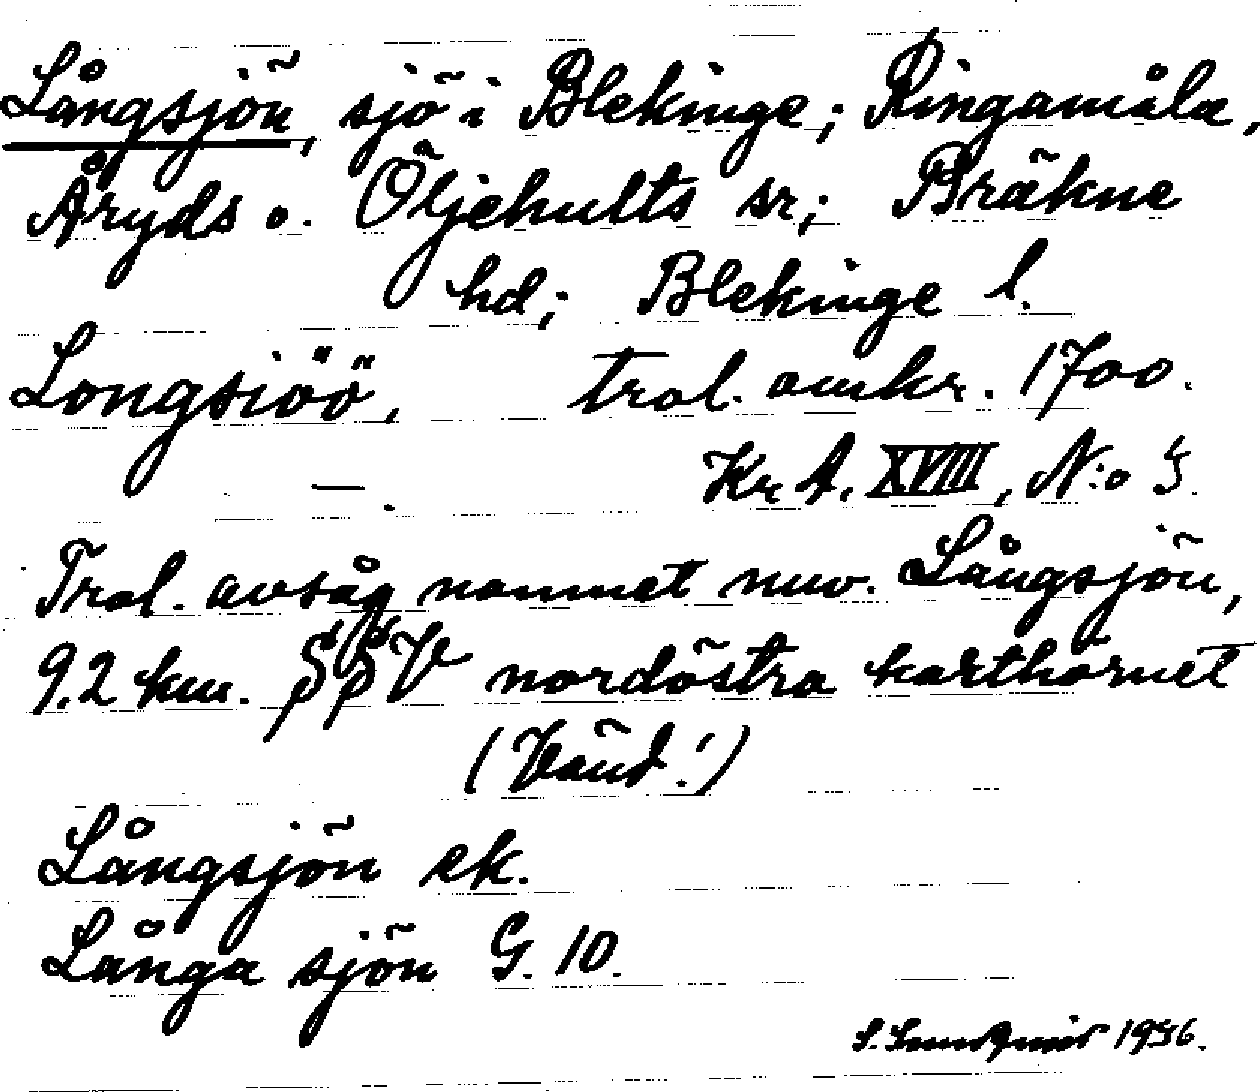 Långsjön, sjö i Blekinge; Ringamåla,
Åryds o. Öljehults sr; Bräkne
hd; Blekinge l.
Longsiöö, trol. omkr. 1700.
— . Kr A. XVIII, N:o 5.
Trol. avsåg namnet nuv. Långsjön,
9.2 km. SSV nordöstra karthörnet
(Vänd!)
Långsjön ek.
Långa sjön G. 10.
S. 1956.